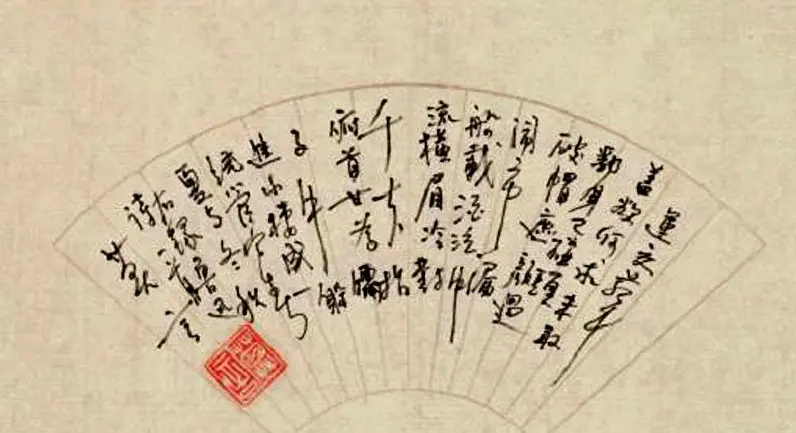 運交華
蓋欲何求未敢
翻身已碰頭
破帽遮顏過
鬧市漏
船載酒泛中
流橫眉冷對
千夫指
俯首甘為孺
子牛
進小樓成一
統管它冬
夏與春秋
右錄魯迅
詩